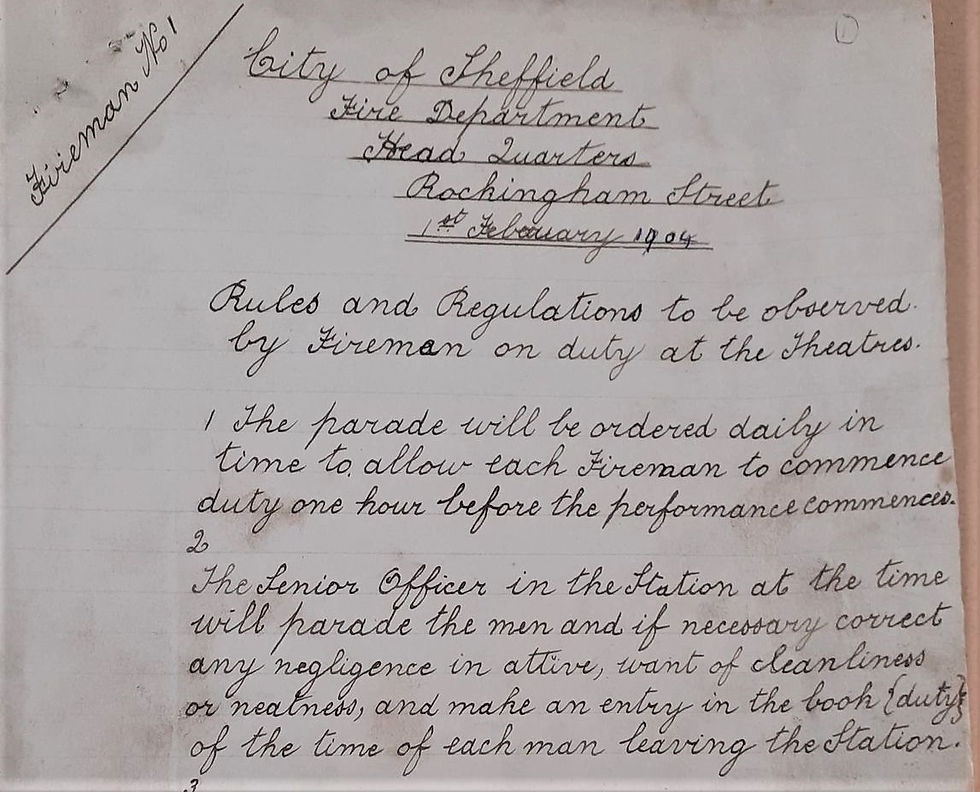 Fireman No 1
1
City of Sheffield
Fire Department
Head Quarters
Rockingham Street
1st February 1904
Rules and Regulations to be observed.
by Fireman on duty at the Theatres.
1 The parade will be ordered daily in
time to allow each Fireman to commence
duty one hour before the performance commences.
2
The Senior Officer in the Station at the time
will parade the men and if necessary correct
any negligence in attire, want of cleanliness
or neatness, and make an entry in the book {duty}
of the time of each man leaving the Station.
3